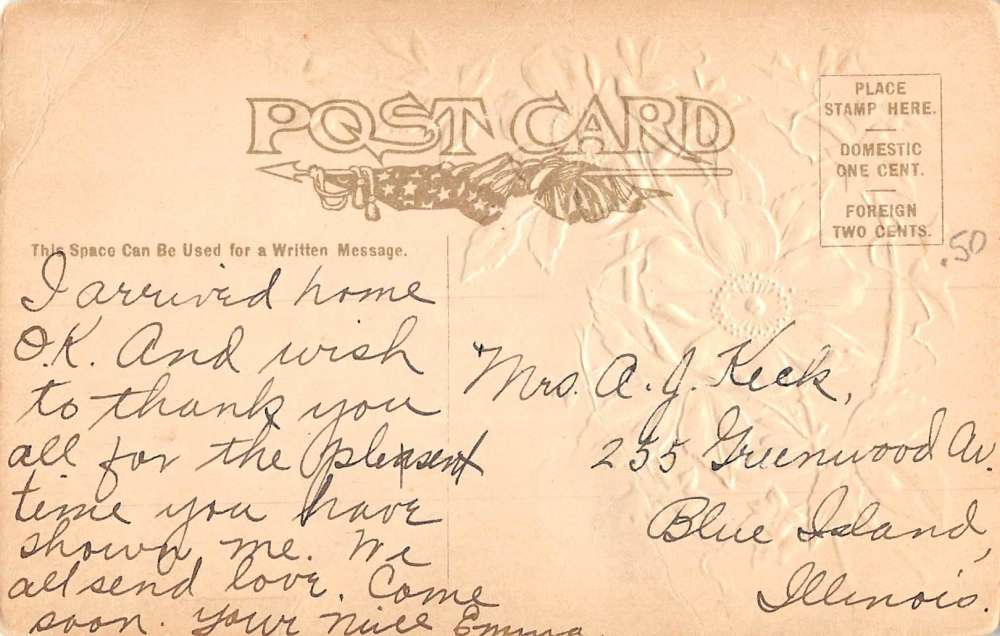 POST CARD
PLACE
STAMP HERE.
DOMESTIC
ONE CENT.
FOREIGN
TWO CENTS.
.50
This Space Can Be Used for a Written Message.
I arrived home
O.K. And wish
to thank you
all for the pleasent
time you have
shown me. We
all send love. Come
soon. Your niece Emma
Mrs. A. J. Keck,
255 Greenwood Av.
Blue Island,
Illinois.